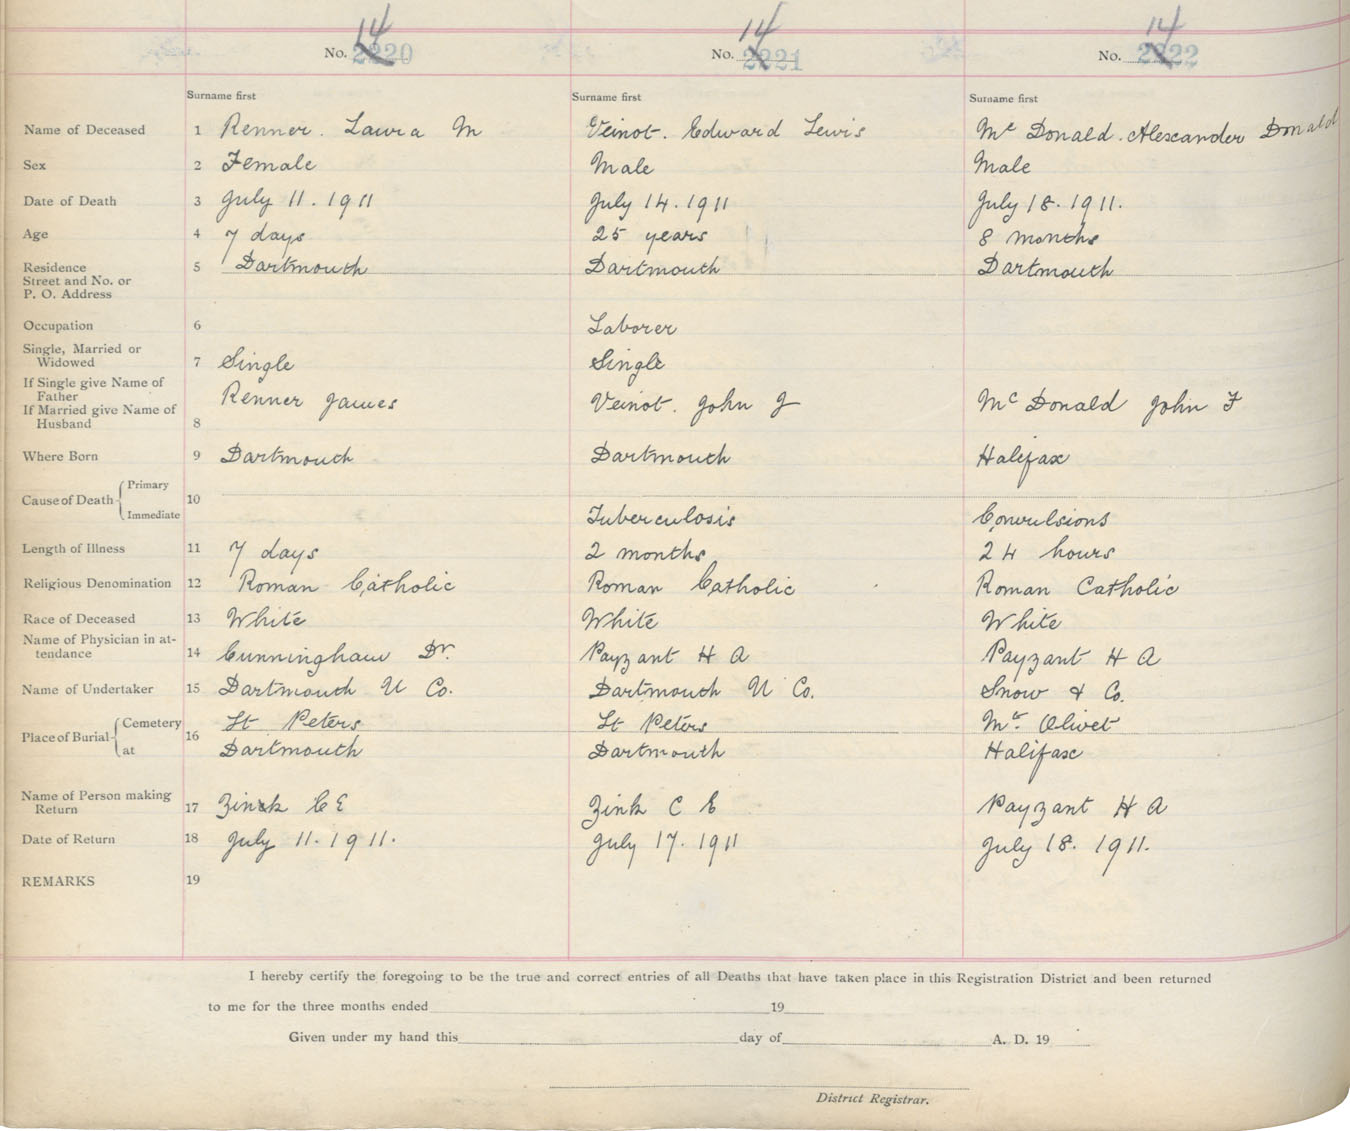 14 14 14
No. 2220 No. 2221 No. 2222
Surname first Surname first Surname first
Name of Deceased 1 Renner. Laura M Veinot. Edward Lewis Mc Donald. Alexander Donald
Sex 2 Female Male Male
Date of Death 3 July 11. 1911 July 14. 1911 July 18. 1911.
Age 4 7 days 25 years 8 months
Residence 5 Dartmouth Dartmouth Dartmouth
Street and No. or
P. O. Address
Occupation 6 Laborer
Single, Married or
Widowed 7 Single Single
If Single give Name of
Father Renner James Veinot. John J Mc Donald John F
If Married give Name of
Husband 8
Where Born 9 Dartmouth Dartmouth Halifax
Primary
Cause of Death 10
Immediate Tuberculosis Convulsions
Length of Illness 11 7 days 2 months 24 hours
Religious Denomination 12 Roman Catholic Roman Catholic Roman Catholic
Race of Deceased 13 White White White
Name of Physician in at-
tendance 14 Cunningham Dr. Payzant H A Payzant H A
Name of Undertaker 15 Dartmouth U Co. Dartmouth U Co. Snow & Co.
Cemetery St Peters St Peters Mt. Olivet
Place of Burial 16
at Dartmouth Dartmouth Halifax
Name of Person making
Return 17 Zink C E Zink C E Payzant H A
Date of Return 18 July 11. 1911. July 17. 1911 July 18. 1911.
REMARKS 19
I hereby certify the foregoing to be the true and correct entries of all Deaths that have taken place in this Registration District and been returned
to me for the three months ended 19
Given under my hand this day of A. D. 19
District Registrar.